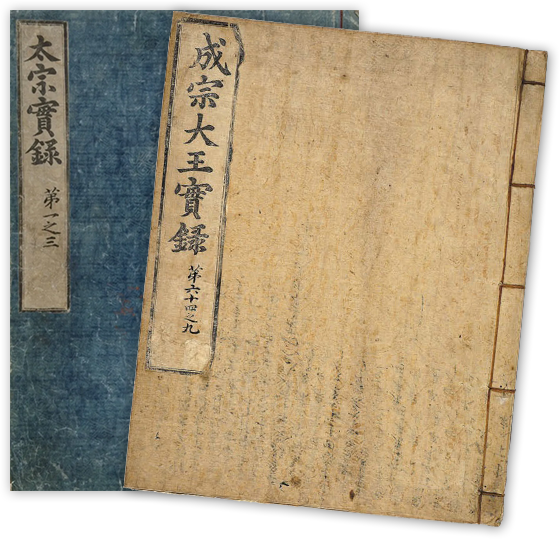 太宗實錄
第一之三
成宗大王實錄
第六十四之九